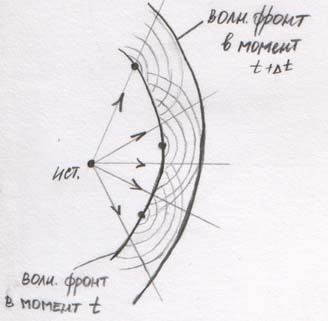 волн. фронт
в момент
t+Δt
ист.
волн. фронт
в момент t